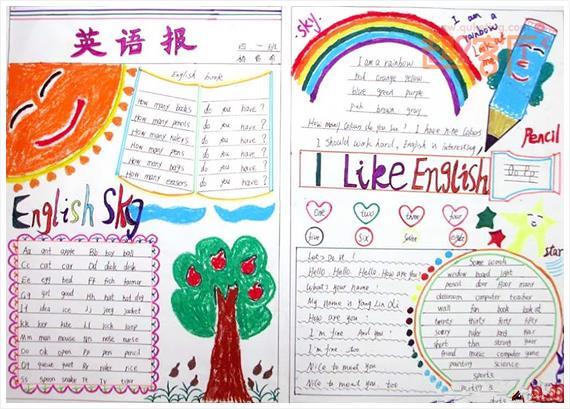 英语报
四一班
English book
How many books do you have?
How many pencils do you have?
How many rulers do you have?
How many pens do you have?
How many bags do you have?
How many erasers do you have?
English Sky
Aa ant apple Bb boy ball
Cc cat car Dd duck dish
Ee egg bed Ff fish
Gg girl good Hh hat hot
If idea ice Jj jeep jacket
Kk key kite Ll lock lamp
Mm man mouse Nn nose nurse
Oo ok open Pp pen pencil
Qq queue quiet Rr ruler rice
Ss spoon snake Tt TV tiger
Sky
I am a rainbow
Look at me
I am a rainbow
red orange yellow
blue green purple
pink brown gray
How many colours do you see? I have nine colours
I should work hard, English is interesting
Pencil
I Like English
one two three four
five six seven eight
star
Let's Do it!
Hello. Hello. Hello. How are you?
What's your name?
My name is
How are you?
I'm fine And you?
I'm fine too
Nice to meet you
Nice to meet you, too
Some words
window board light
pencil door floor many
classroom computer teacher
wall fan book look at
twenty thirty forty fifty
sorry ruler and hair
short thin strong pear
friend music computer game
painting science
sports